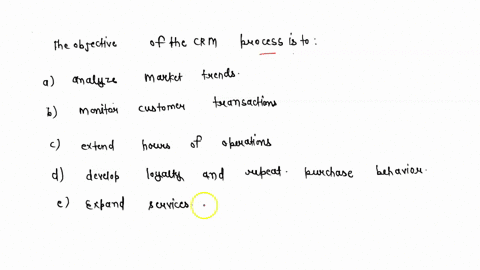 The objective of the CRM process is to:
a) analyze market trends.
b) monitor customer transactions
c) extend hours of operations
d) develop loyalty and repeat. purchase behavior.
e) Expand services.